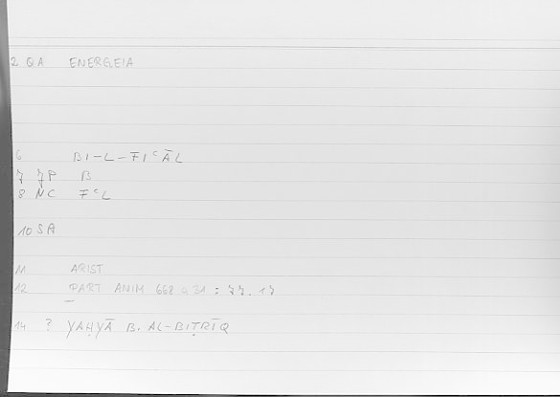 2 QA ENERGEIA
6 BI-L-FIᶜĀL
7 7P B
8 NC FᶜL
10 SA
11 ARIST
12 PART ANIM 668 a 31 : 77.17
14 ? YAḤYĀ B. AL-BIṬRĪQ